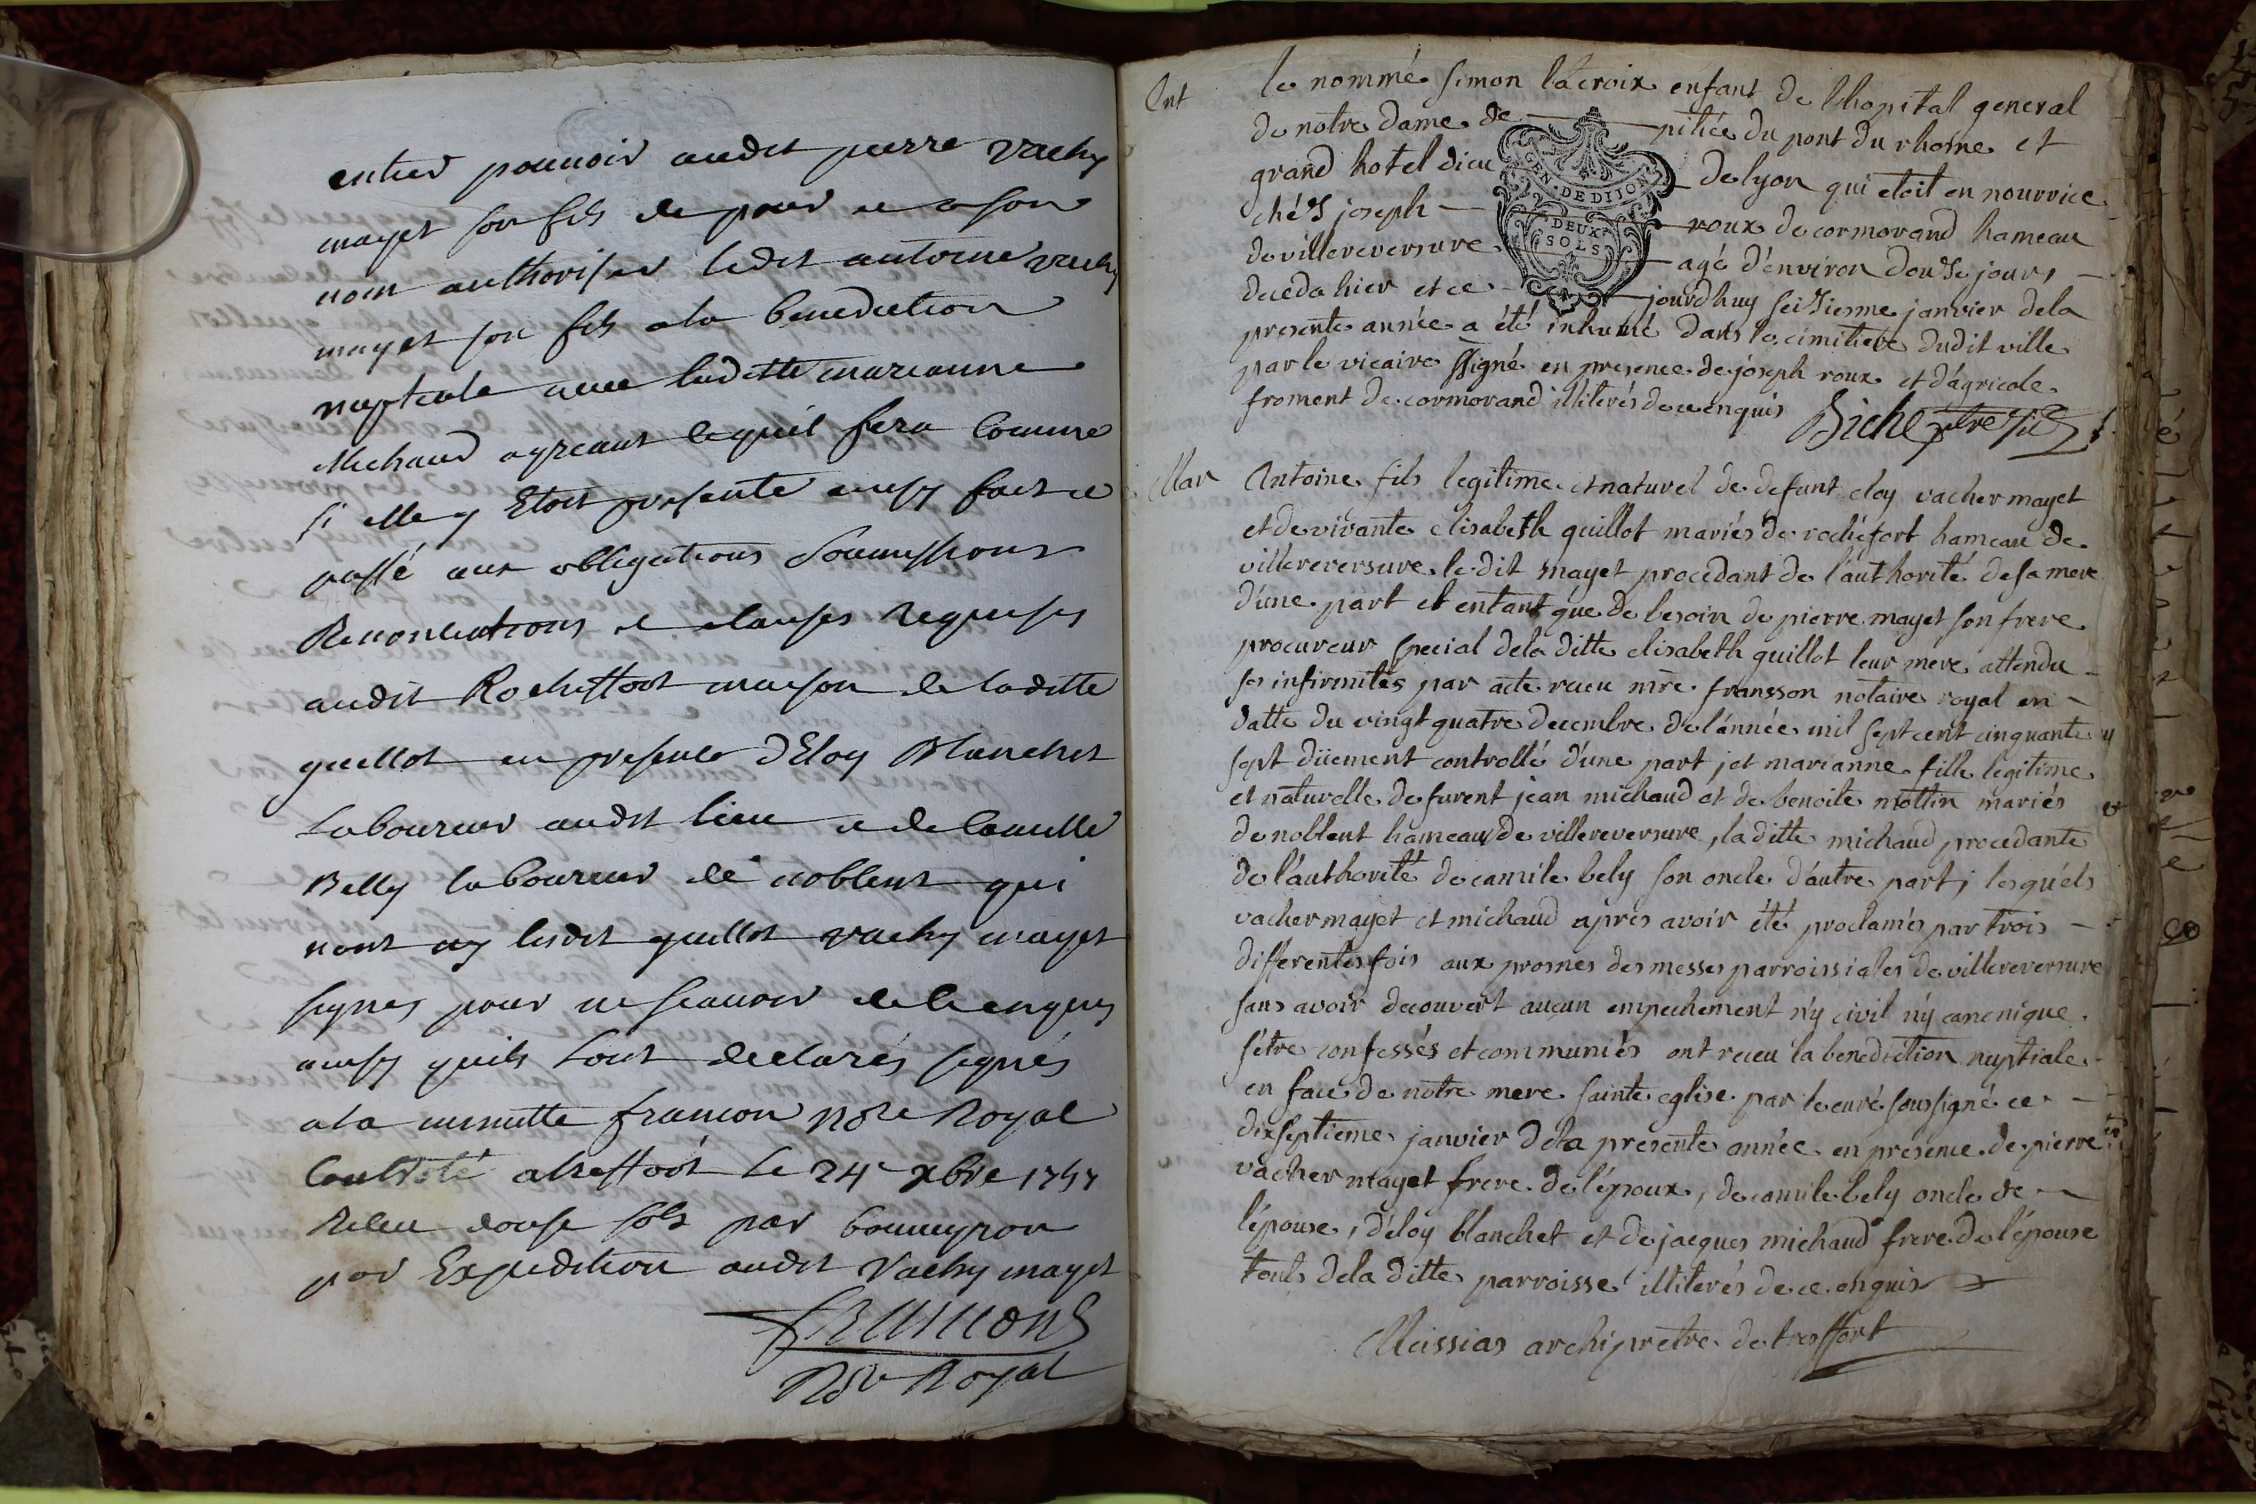 entier pouvoir audit pierre vachy
mayet son fils de pour et a son
nom authoriser ledit antoine vachy
mayet son fils a la benediction
nuptiale avec laditte marianne
Michaud agreant ce quil fera comme
si elle y Etoit presente ainsy fait et
passé aux obligations soumissions
Renonciations et clauses requises
audit Rocheffort maison de laditte
guillot en presence dEloy Blanchet
Laboureur audit lieu et de Camille
Belly laboureur de noblent qui
nont ny lesdit guillot vachy mayet
signes pour ne scauoir de ce enquis
ainsy quils Lont declarés signés
a la minutte francon Nore Royal
Controlé a treffort le 24e xbre 1757
Receu douse sols par bonneypon
par Expedition audit Vachy mayet
francon
Nore Royal
Ent
le nommé simon lacroix enfant de l'hopital general
de notre dame de pitiée du pont du rhosne et
grand hotel dieu de lyon qui etoit en nourrice
chéz joseph roux de cormorand hameau
de villereversure agé d'environ douze jours
decedа hier et ce jourdhuy seizieme janvier de la
presente année a été inhumé dans le cimitiere dudit ville
par le vicaire ssigné en presence de joseph roux et d'agricole
froment de cormorand illiterés de ce enquis
Biche ptre vic
GEN · DE DIJON
DEUX
SOLS
Mar
Antoine fils legitime et naturel de defunt eloy vacher mayet
et de vivante elisabeth guillot mariés de rochefort hameau de
villereversure, le dit mayet procedant de l'authorité de sa mere
d'une part et entant que de besoin de pierre mayet son frere
procureur special de la ditte elisabeth guillot leur mere attendu
ses infirmités par acte receu mre fransson notaire royal en
datte du vingt quatre decembre de l'année mil sept cent cinquante
sept düement controllé d'une part, et marianne fille legitime
et naturelle de furent jean michaud et de benoite mottin mariés
de noblent hameau de villereversure, la ditte michaud procedante
de l'authorité de camile bely son oncle d'autre part; lesquels
vacher mayet et michaud apres avoir été proclamés par trois
differentes fois aux prosnes des messes parroissiales de villereversure
sans avoir decouvert aucun empechement n'y civil n'y canonique
s'etre confessés et communiés ont receu la benediction nuptiale
en face de notre mere sainte eglise par le curé soussigné ce
dixseptieme janvier de la presente année en presence de pierre
vacher mayet frere de l'époux, de camile bely oncle de
l'épouse, d'éloy blanchet et de jacques michaud frere de l'épouse
touts de la ditte parroisse illiterés de ce enquis
Meissias archiprêtre de treffort